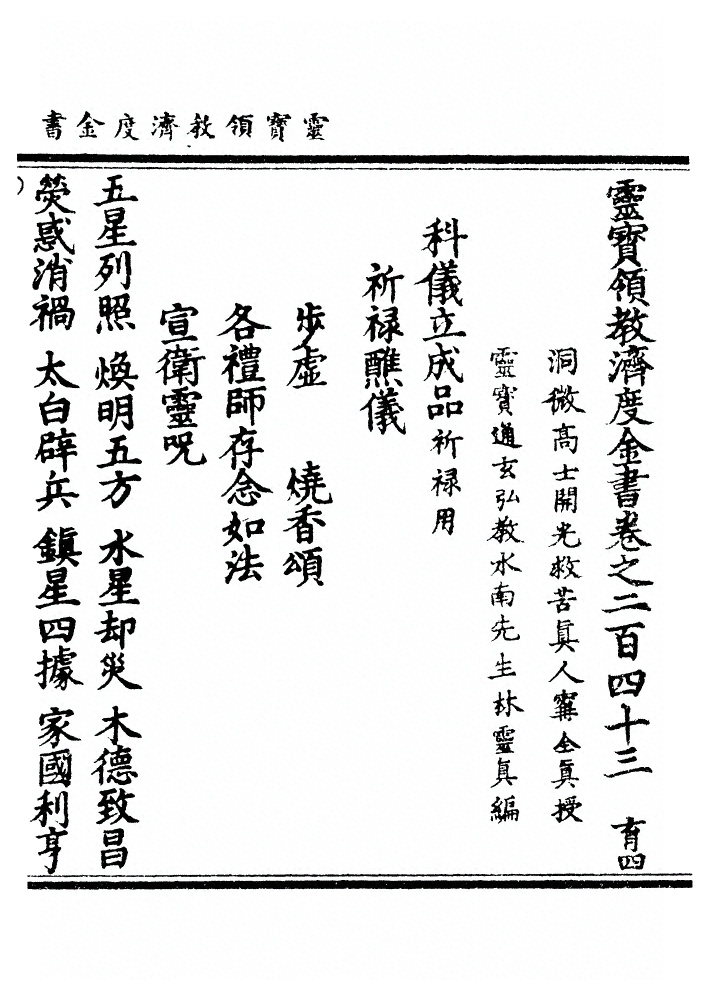 靈寳領教濟度金書
靈寳領教濟度金書卷之二百四十三　育四
洞微髙士開光救苦眞人寗全眞授
靈寳通玄弘教水南先生林靈眞編
科儀立成品祈禄用
祈禄醮儀
步虛　燒香頌
各禮師存念如法
宣衛靈呪
五星列照　煥明五方　水星却災　木德致昌
熒惑消禍　太白辟兵　鎭星四據　家國利亨